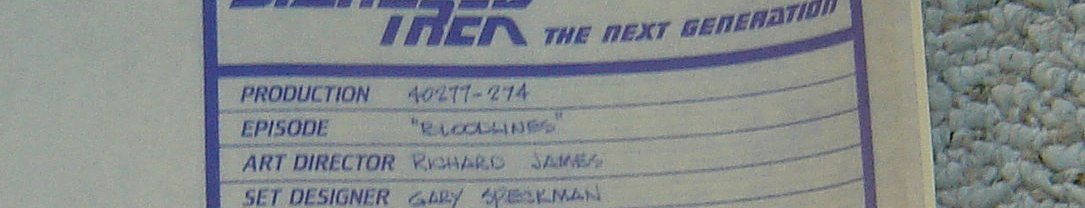 TREK THE NEXT GENERATION
PRODUCTION 40277-274
EPISODE "BLOODLINES"
ART DIRECTOR RICHARD JAMES
SET DESIGNER GARY SPECKMAN